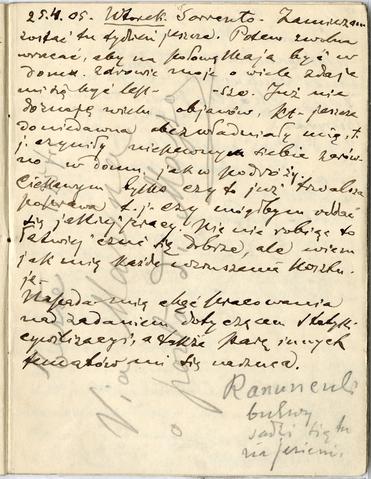 25.4.05. Wtorek. Sorrento. Zamierzam
zostać tu tydzień jeszcze. Potem zwolna
wracać, aby na połowę Maja być w
domu. Zdrowie moje o wiele zdaje
mi się być lep- -sze. Już nie
doznaję wielu objawów, kt. jeszcze
do niedawna obezwładniały mię, t.
j. czyniły niepewnym siebie zarów-
no w domu, jak w podróży.
Ciekawym tylko czy to już trwalsza
poprawa t. j. czy mógłbym oddać
się jakiejś pracy. Nic nie robiąc to
łatwiej czuć się dobrze, ale wiem
jak mię każde wzruszenie kosztu-
je.
Napada mię chęć pracowania
nad zadaniem dotyczącem statyki
cywilizacyi, a także parę innych
tematów mi się narzuca.
Ranunculi
bulwy
sadzi się tu
na jesieni.
Via
o